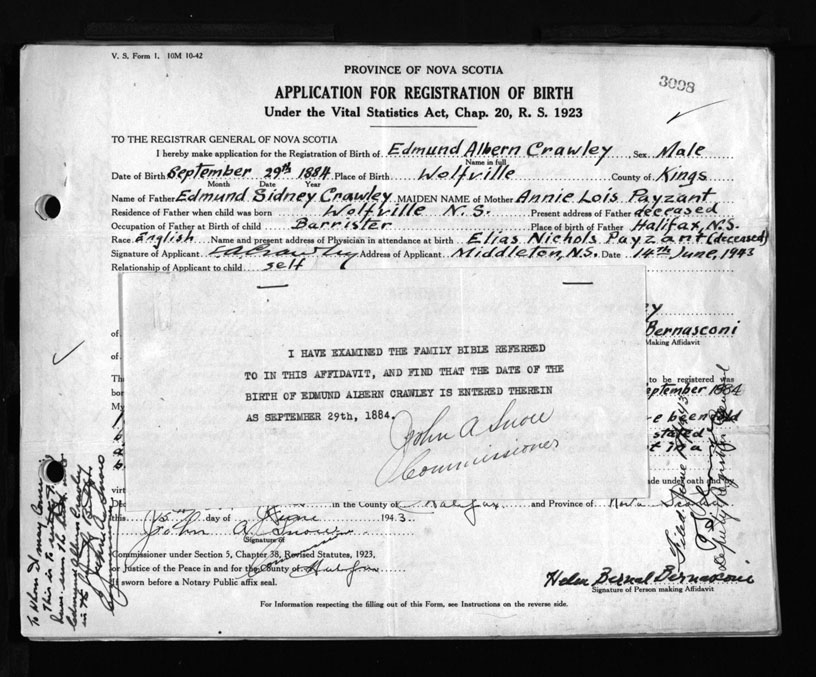 V. S. Form 1. 10M 10-42
3098
PROVINCE OF NOVA SCOTIA
APPLICATION FOR REGISTRATION OF BIRTH
Under the Vital Statistics Act, Chap. 20, R. S. 1923
TO THE REGISTRAR GENERAL OF NOVA SCOTIA
I hereby make application for the Registration of Birth of Edmund Albern Crawley, Sex Male
Name in full
Date of Birth September 29th 1884 Place of Birth Wolfville County of Kings
Month Date Year
Name of Father Edmund Sidney Crawley MAIDEN NAME of Mother Annie Lois Payzant
Residence of Father when child was born Wolfville N.S. Present address of Father deceased
Occupation of Father at Birth of child Barrister Place of birth of Father Halifax, N.S.
Race English Name and present address of Physician in attendance at birth Elias Nichols Payzant (deceased)
Signature of Applicant EACrawley Address of Applicant Middleton, N.S. Date 14th June, 1943
Relationship of Applicant to child self
ey
of Bernasconi
Making Affidavit
of
I HAVE EXAMINED THE FAMILY BIBLE REFERRED
TO IN THIS AFFIDAVIT, AND FIND THAT THE DATE OF THE
BIRTH OF EDMUND ALBERN CRAWLEY IS ENTERED THEREIN
AS SEPTEMBER 29th, 1884.
John A Snow
Commissioner
to be registered was
September 1884
been told
stated
t in a
ade under oath and by
virt
in the County of Halifax and Province of Nova Sco
this 15th day of June 1943
John A Snow
Signature of
Commissioner under Section 5, Chapter 38, Revised Statutes, 1923,
or Justice of the Peace in and for the County of Halifax
If sworn before a Notary Public affix seal.
Helen Bernal Bernasconi
Signature of Person making Affidavit
For Information respecting the filling out of this Form, see Instructions on the reverse side.
To Whom It may Con
This is to